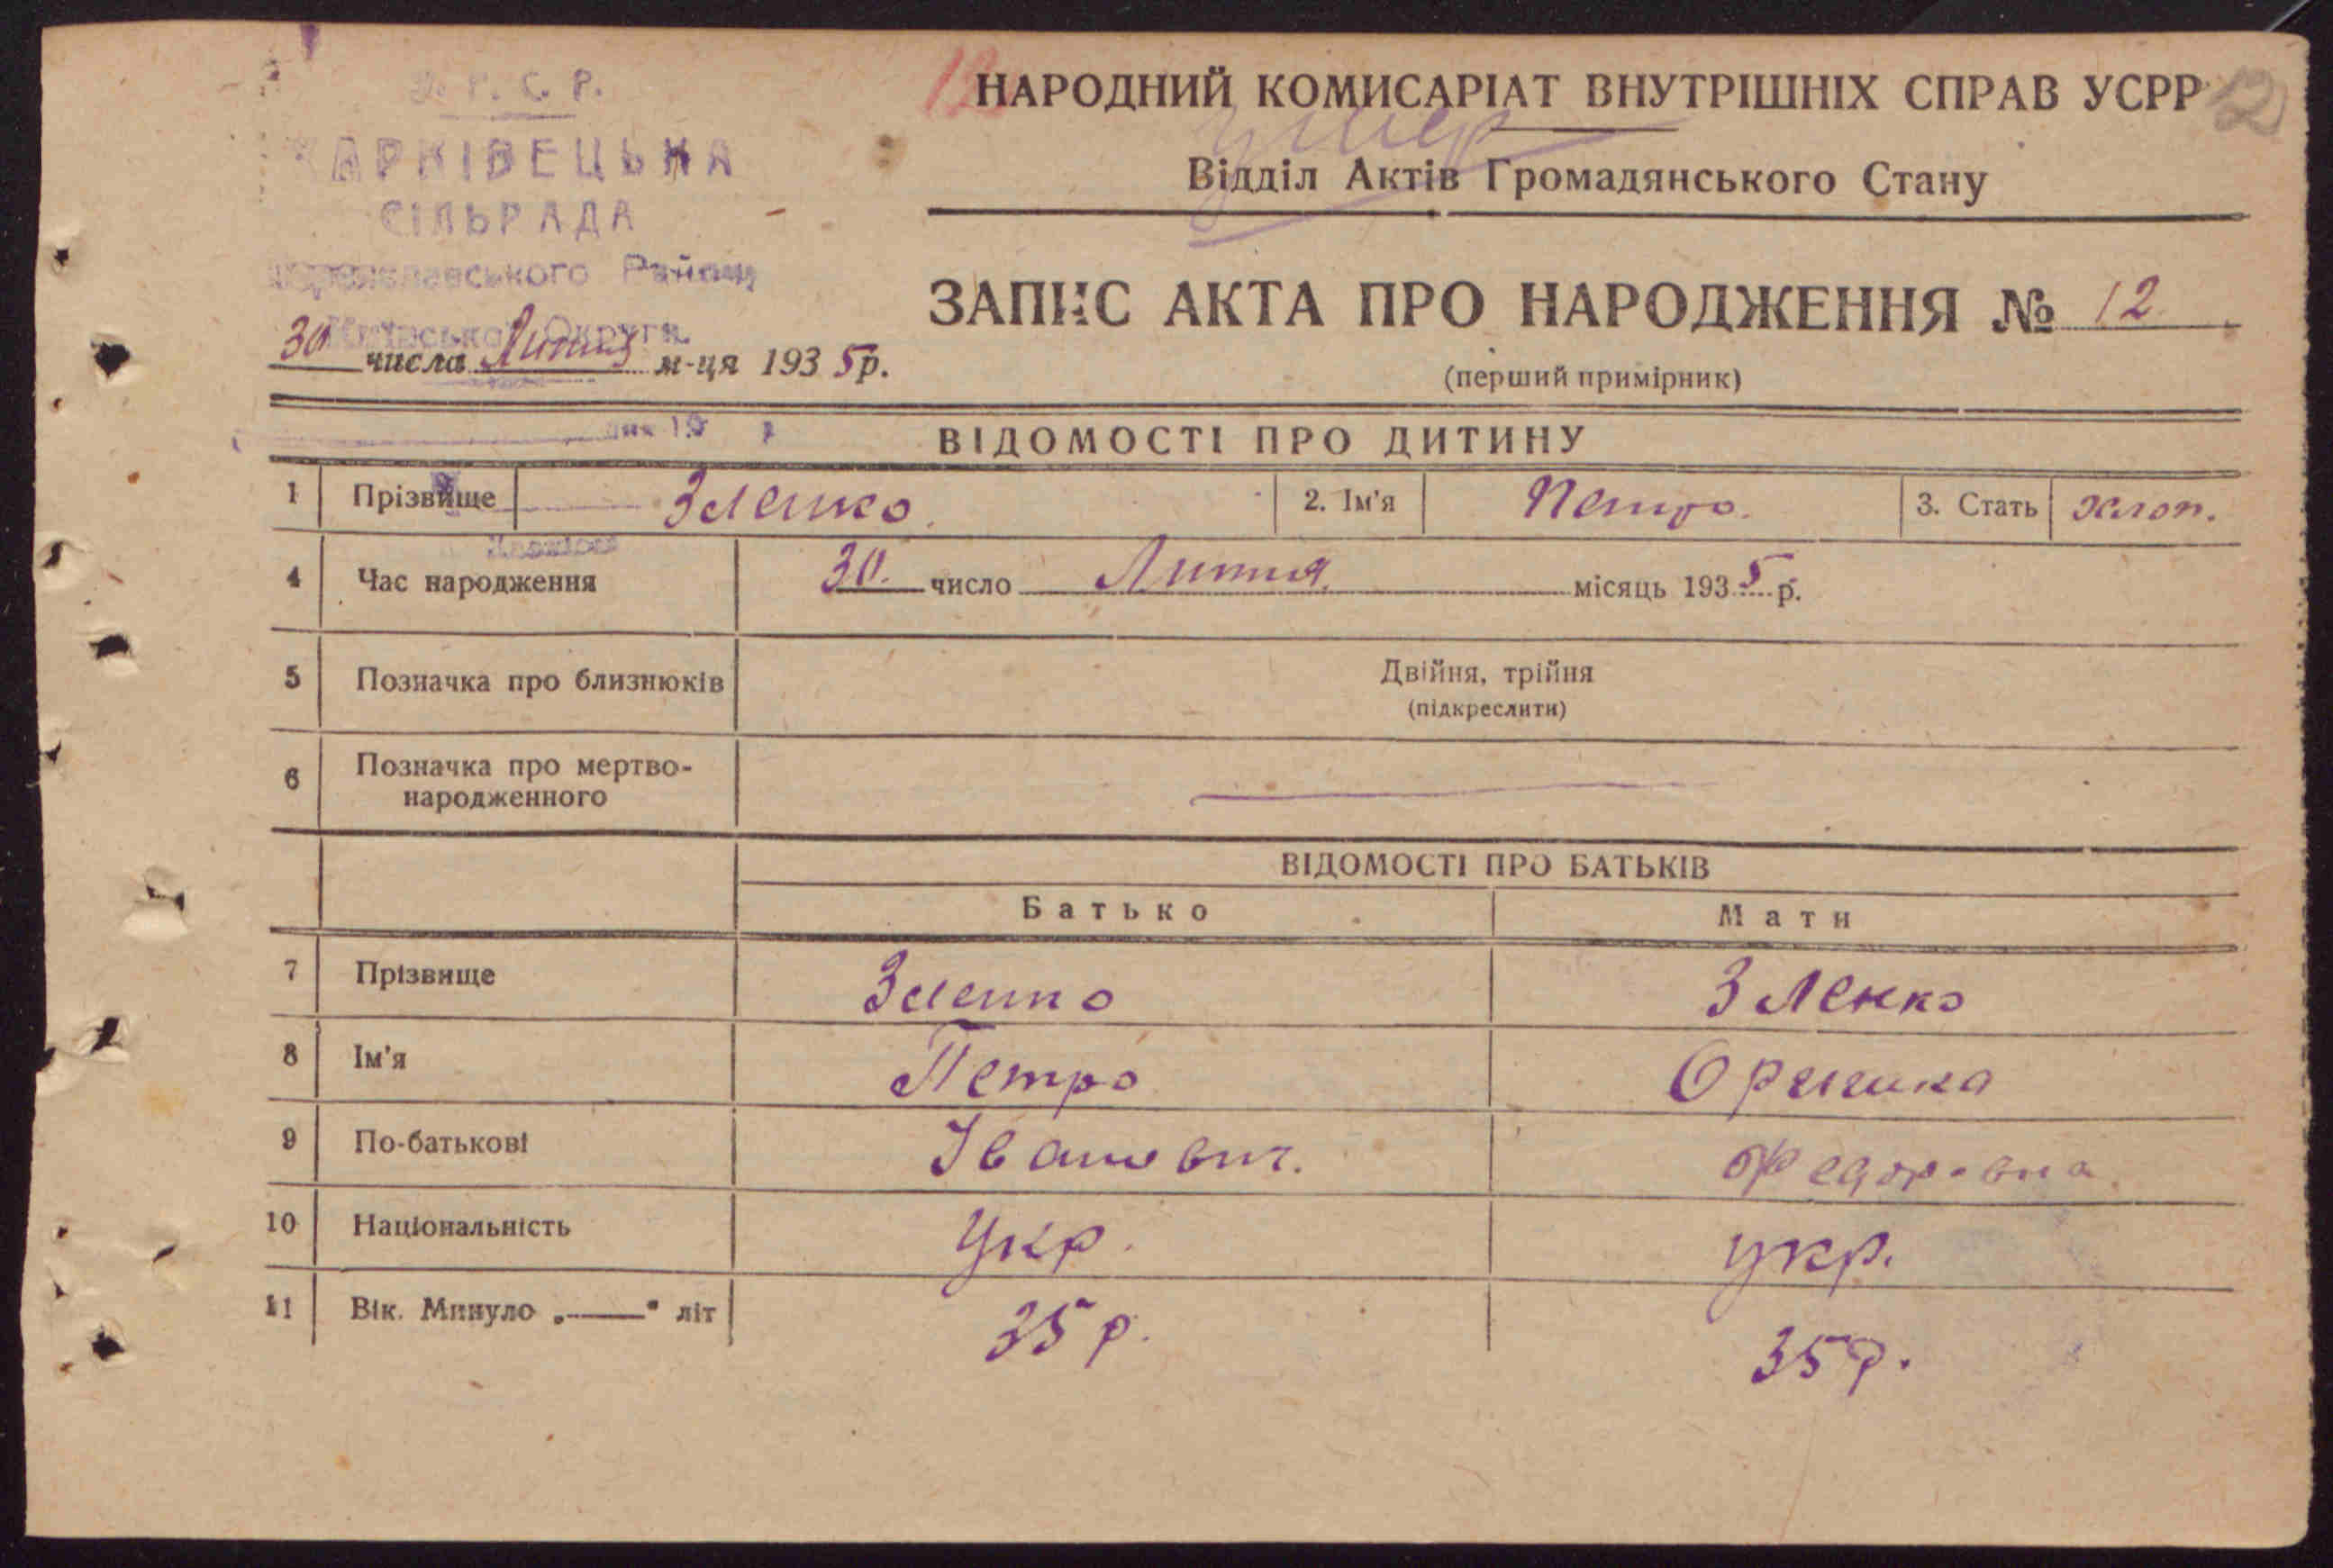 У. Р. С. Р.
ХАРКІВЕЦЬКА
СІЛЬРАДА
Переяславського Району
Округи
12
НАРОДНИЙ КОМИСАРІАТ ВНУТРІШНІХ СПРАВ УСРР
12
умер
Відділ Актів Громадянського Стану
ЗАПИС АКТА ПРО НАРОДЖЕННЯ № 12
30 числа Липня м-ця 1935 р.
(перший примірник)
ВІДОМОСТІ ПРО ДИТИНУ
1 Прізвище Зленко 2. Ім'я Петро. 3. Стать хлоп.
4 Час народження 30. число Липня місяць 1935 р.
5 Позначка про близнюків Двійня, трійня
(підкреслити)
6 Позначка про мертво-
народженного
ВІДОМОСТІ ПРО БАТЬКІВ
Батько Мати
7 Прізвище Зленко Зленко
8 Ім'я Петро Оришка
9 По-батькові Іванович. Федоровна
10 Національність Укр. укр.
11 Вік. Минуло „——" літ 35 р. 35 р.